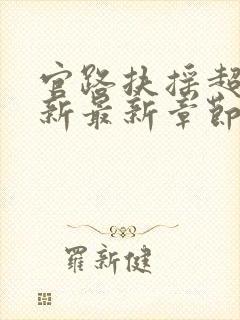 官路扶摇超
新最新章節
羅新健